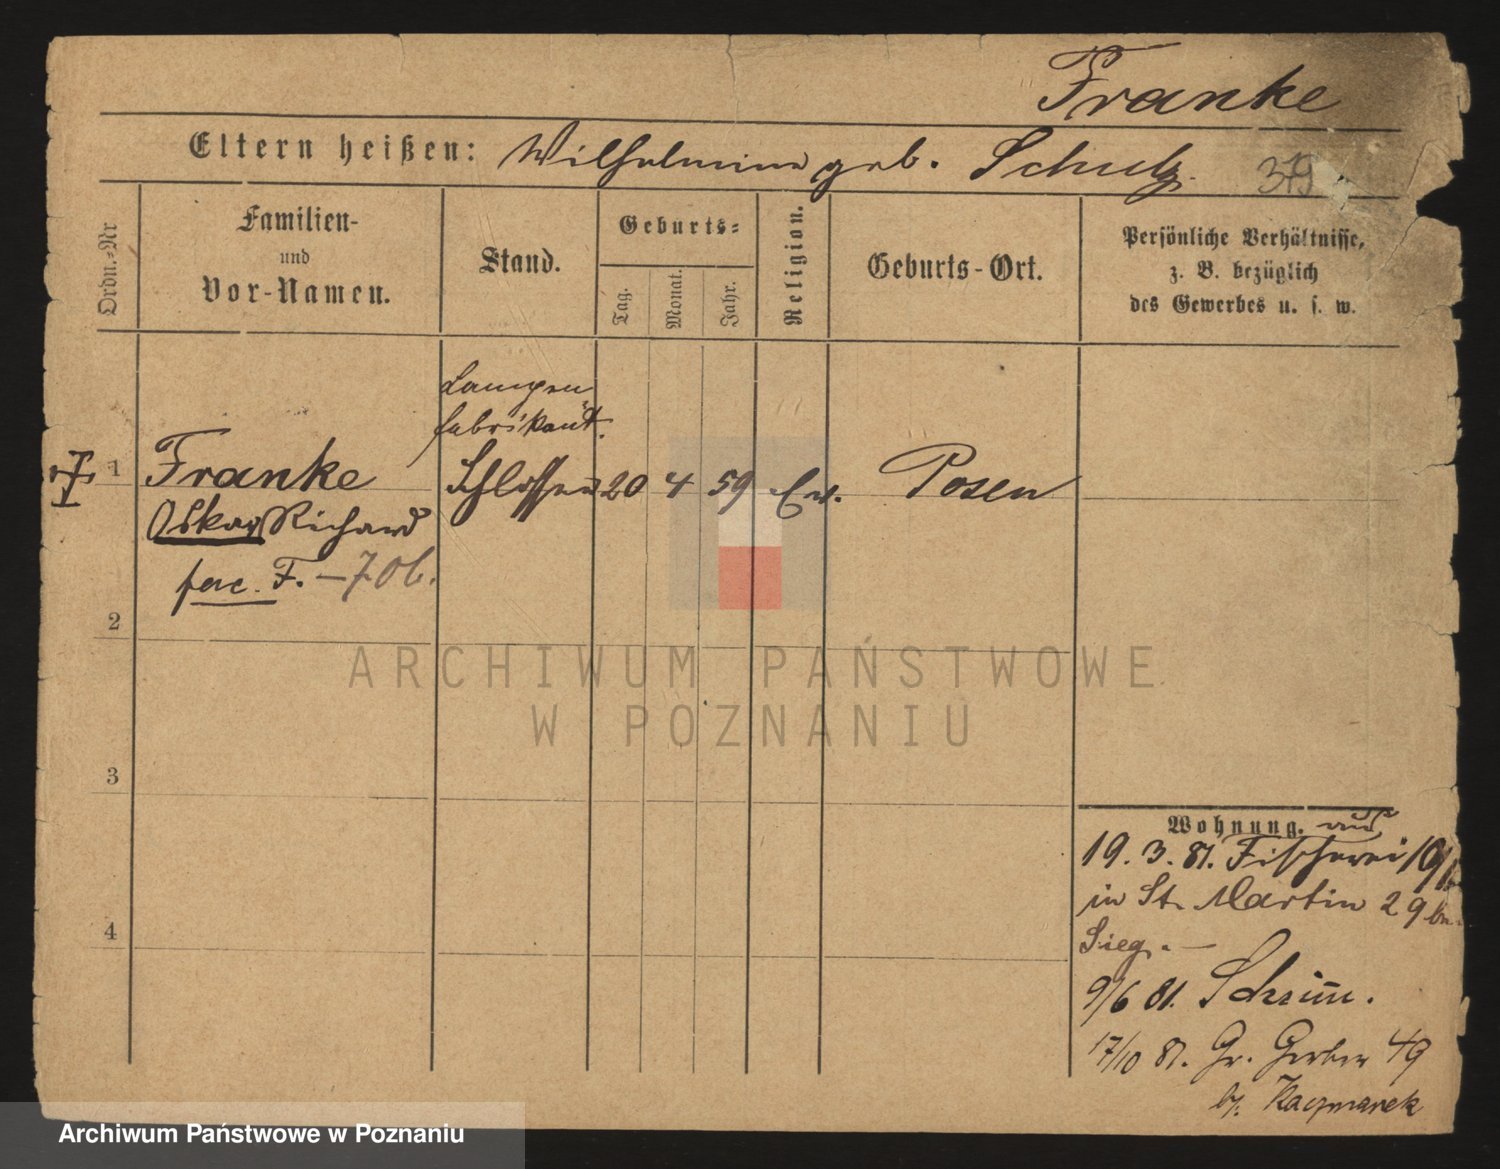 Franke
Eltern heißen: Wilhelmine geb. Schulz.
379
Ordn.-Nr
Familien-
und
Vor-Namen.
Stand.
Geburts-
Tag.
Monat.
Jahr.
Religion.
Geburts-Ort.
Persönliche Verhältnisse,
z. B. bezüglich
des Gewerbes u. s. w.
Lampen
fabrikant.
1 Franke Schlosser 20 4 59 Ev. Posen
Oskar Richard
F.
2
3
4
Wohnung.
19. 3. 81. Fischerei
in St. Martin 29
Sieg. —
9/6 81. Schrimm.
17/10 81. Gr. Gerber 49
b. Kaczmarek
ARCHIWUM PAŃSTWOWE
W POZNANIU
Archiwum Państwowe w Poznaniu